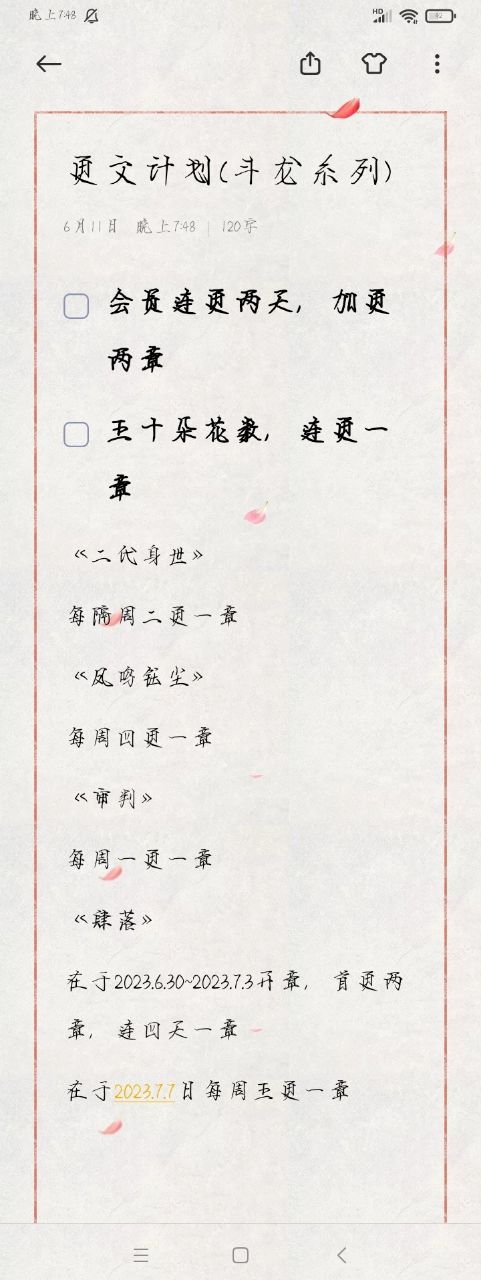 晚上7:48
HD
82
更文计划(斗龙系列)
6月11日 晚上7:48 | 120字
会员连更两天, 加更
两章
五十朵花数, 连更一
章
《二代身世》
每隔周二更一章
《凤鸣铉尘》
每周四更一章
《审判》
每周一更一章
《肆落》
在于2023.6.30~2023.7.3开章, 首更两
章, 连四天一章
在于2023.7.7日每周五更一章